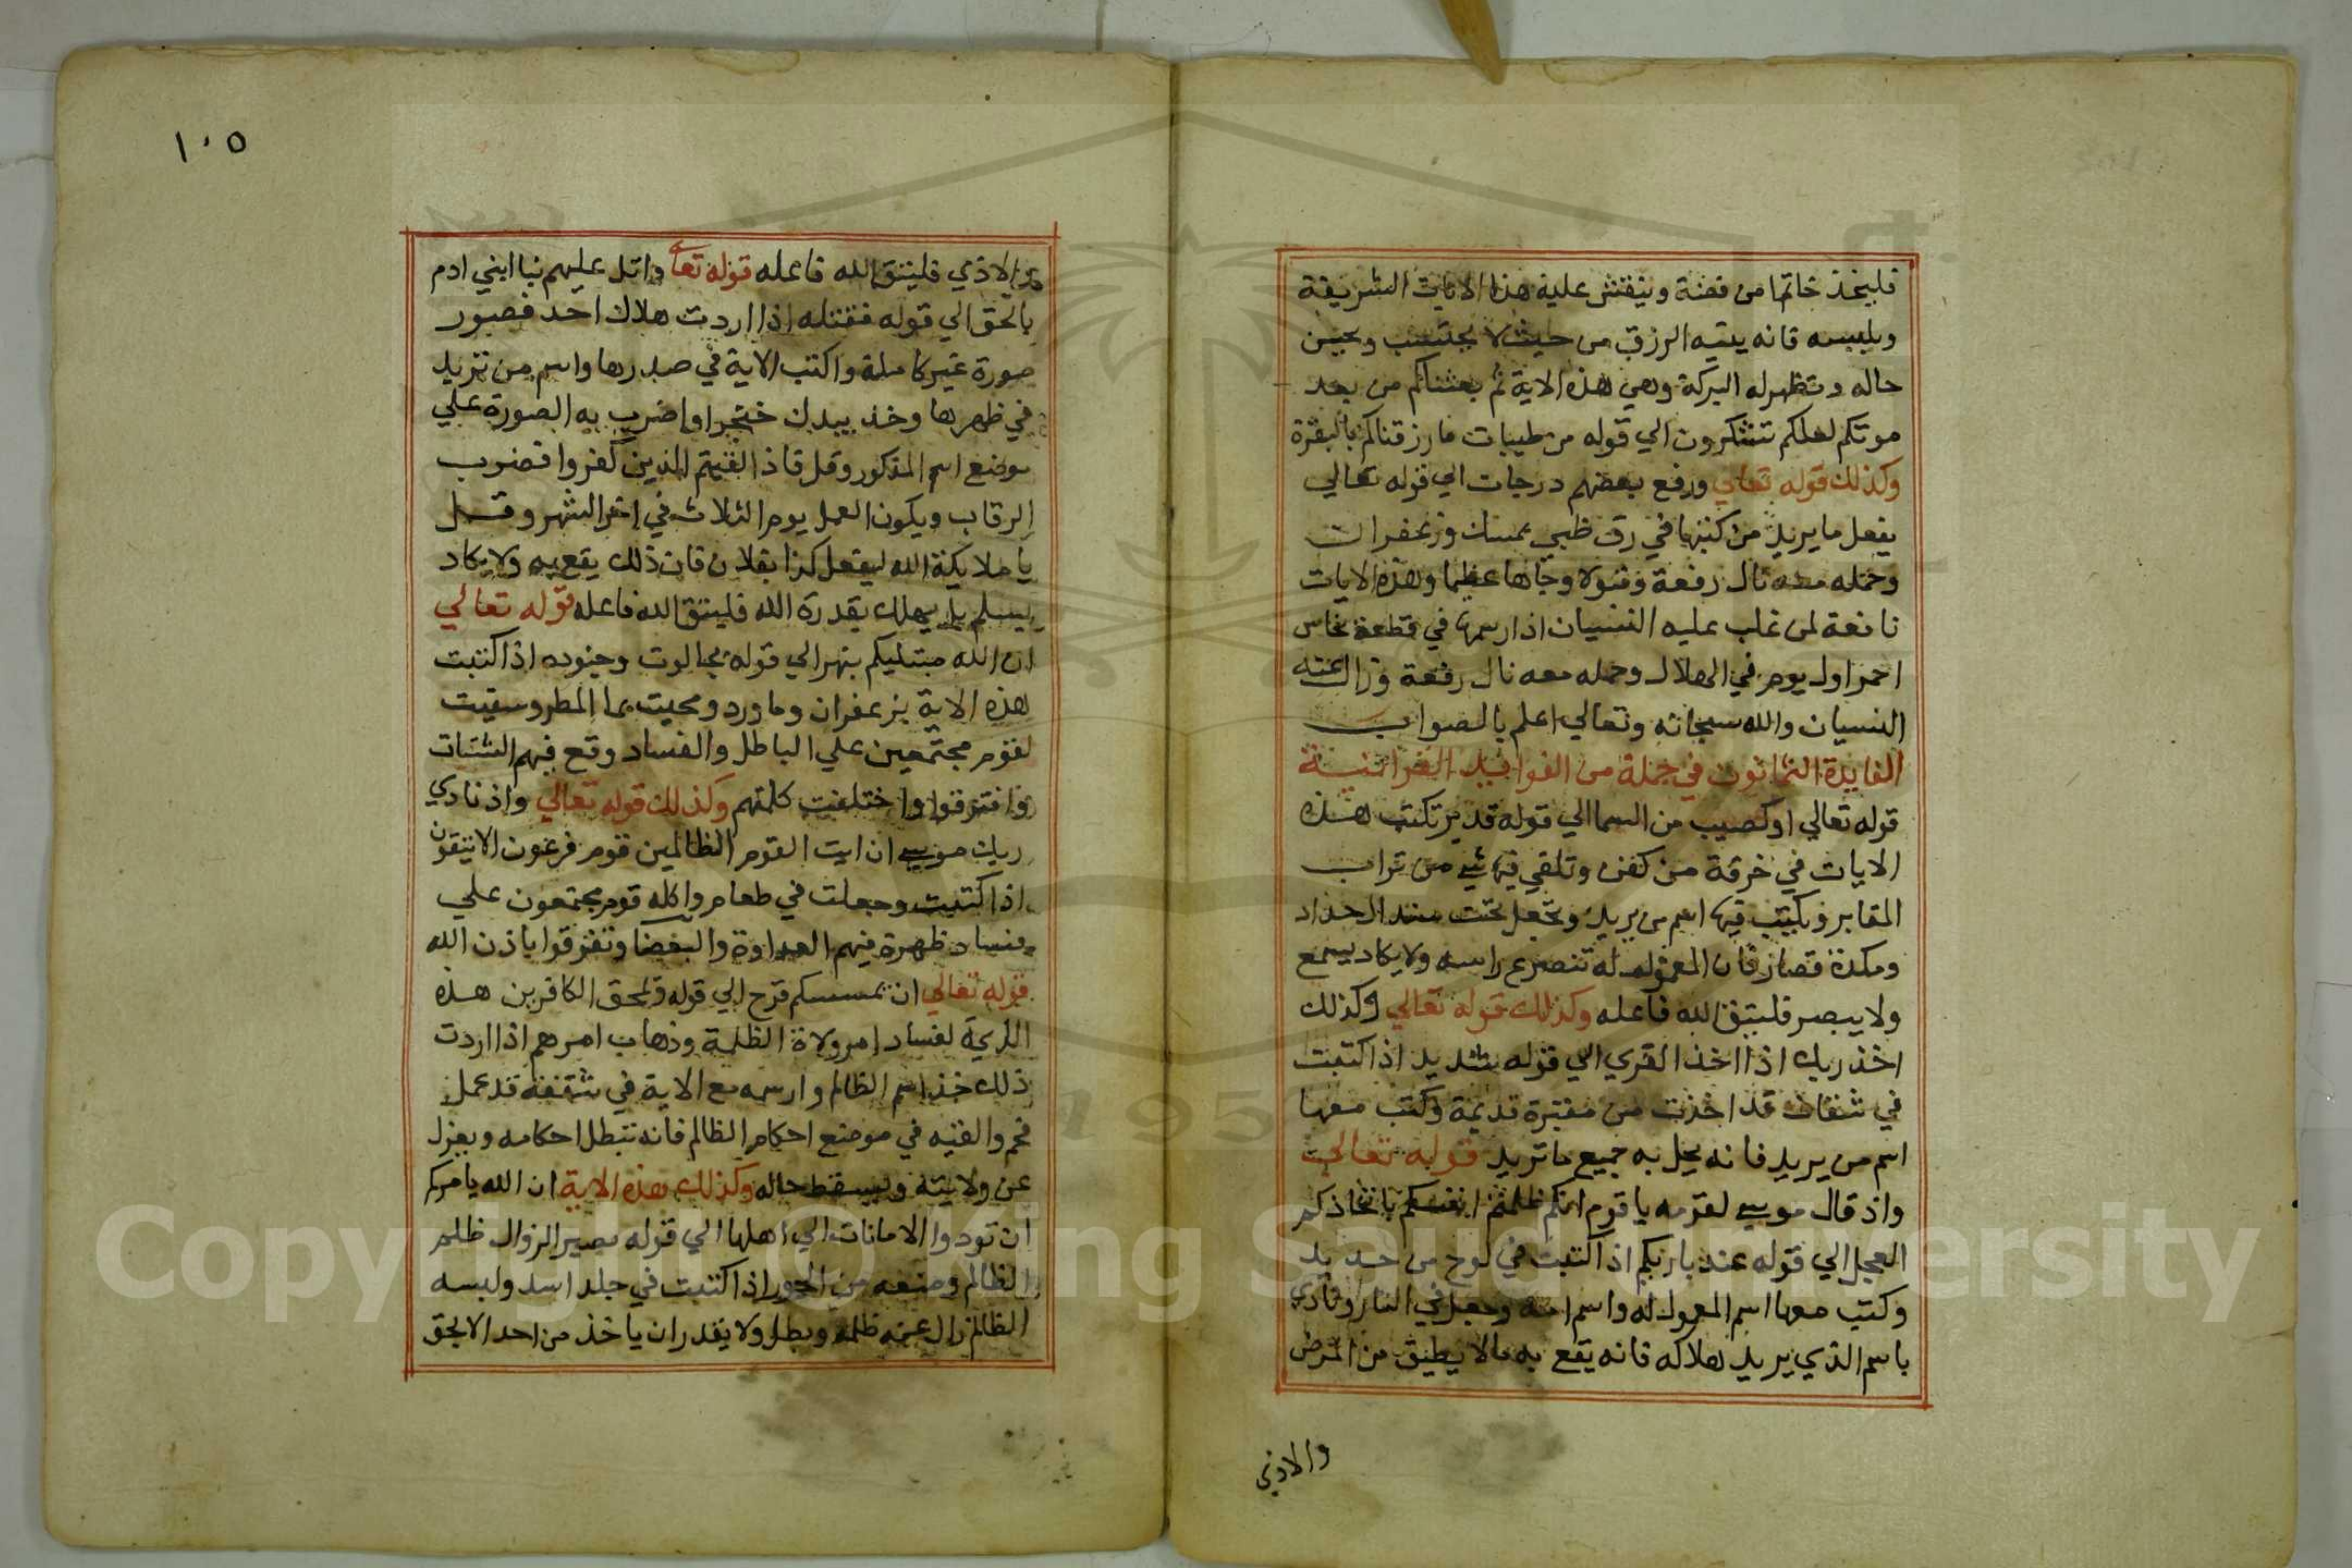 فليتخذ خاتما من فضة وينقش عليه هذا الايات الشريفة
ويلبسه فانه يتيه الرزق من حيث لا يحتسب ويحسن
حاله وتظهر له البركة وهي هذه الاية ثم بعثناكم من بعد
موتكم لعلكم تشكرون الي قوله من طيبات ما رزقناكم بالبقرة
وكذلك قوله تعالي ورفع بعضهم درجات الي قوله تعالي
يفعل ما يريد من كتبها في رق ظبي بمسك وزعفران
وحمله معه نال رفعة وقبولا وجاها عظيما وهذه الايات
نافعة لمن غلب عليه النسيان اذا رسمها في قطعة نحاس
احمر اول يوم في الهلال وحمله معه نال رفعة وزال عنه
النسيان والله سبحانه وتعالي اعلم بالصواب
الفايدة الثمانون في جملة من الفوايد القرانية
قوله تعالي اوكصيب من السما الي قوله قدير تكتب هذه
الايات في خرقة من كفن وتلقي فيها شي من تراب
المقابر ويكتب فيها اسم من يريد وتجعل تحت سند الحداد
ومكدة قصار فان المعمول له تنصرع راسه ولا يكاد يسمع
ولا يبصر فليتق الله فاعله وكذلك قوله تعالي وكذلك
اخذ ربك اذا اخذ القري الي قوله شديد اذا كتبت
في شقاف قد اخذت من مقبرة قديمة وكتب معها
اسم من يريد فانه يحل به جميع ما تريد قوله تعالي
واذ قال موسي لقومه يا قوم انكم ظلمتم انفسكم باتخاذكم
العجل الي قوله عند باريكم اذا كتبت في لوح من حديد
وكتب معها اسم المعمول له واسم امه وجعل في النار ونادي
باسم الذي يريد هلاكه فانه يقع به مالا يطيق من المرض
والاذي
١٠٥
والاذي فليتق الله فاعله قوله تعالي واتل عليهم نبا ابني ادم
بالحق الي قوله فقتله اذا اردت هلاك احد فصور
صورة غير كاملة واكتب الاية في صدرها واسم من تريد
في ظهرها وخذ بيدك خنجرا واضرب به الصورة علي
موضع اسم المذكور وقل فاذا لقيتم الذين كفروا فضرب
الرقاب ويكون العمل يوم الثلاث في اخر الشهر وقل
يا ملايكة الله ليفعل كذا بفلان فان ذلك يقع به ولا يكاد
يسلم بل يهلك بقدرة الله فليتق الله فاعله قوله تعالي
ان الله مبتليكم بنهر الي قوله بجالوت وجنوده اذا كتبت
هذه الاية بزعفران وما ورد ومحيت بما المطر وسقيت
لقوم مجتمعين علي الباطل والفساد وقع فيهم الشتات
وافترقوا واختلفت كلمتهم وكذلك قوله تعالي واذ نادي
ربك موسي ان ايت القوم الظالمين قوم فرعون الا يتقون
اذا كتبت وجعلت في طعام واكله قوم مجتمعون علي
فساد ظهرة فيهم العداوة والبغضا وتفرقوا باذن الله
قوله تعالي ان يمسسكم قرح الي قوله ويمحق الكافرين هذه
الاية لفساد امر ولاة الظلمة وذهاب امرهم اذا اردت
ذلك خذ اسم الظالم وارسمه مع الاية في شقفة قد عمل
فحم والقيه في موضع احكام الظالم فانه تبطل احكامه ويعزل
عن ولايته ويسقط حاله وكذلك هذه الاية ان الله يامركم
ان تودوا الامانات الي اهلها الي قوله بصيرا لزوال ظلم
الظالم ومنعه من الجور اذا كتبت في جلد اسد ولبسه
الظالم زال عنه ظلمه وبطل ولا يقدر ان ياخذ من احد الا بحق
Copyright © King Saud University